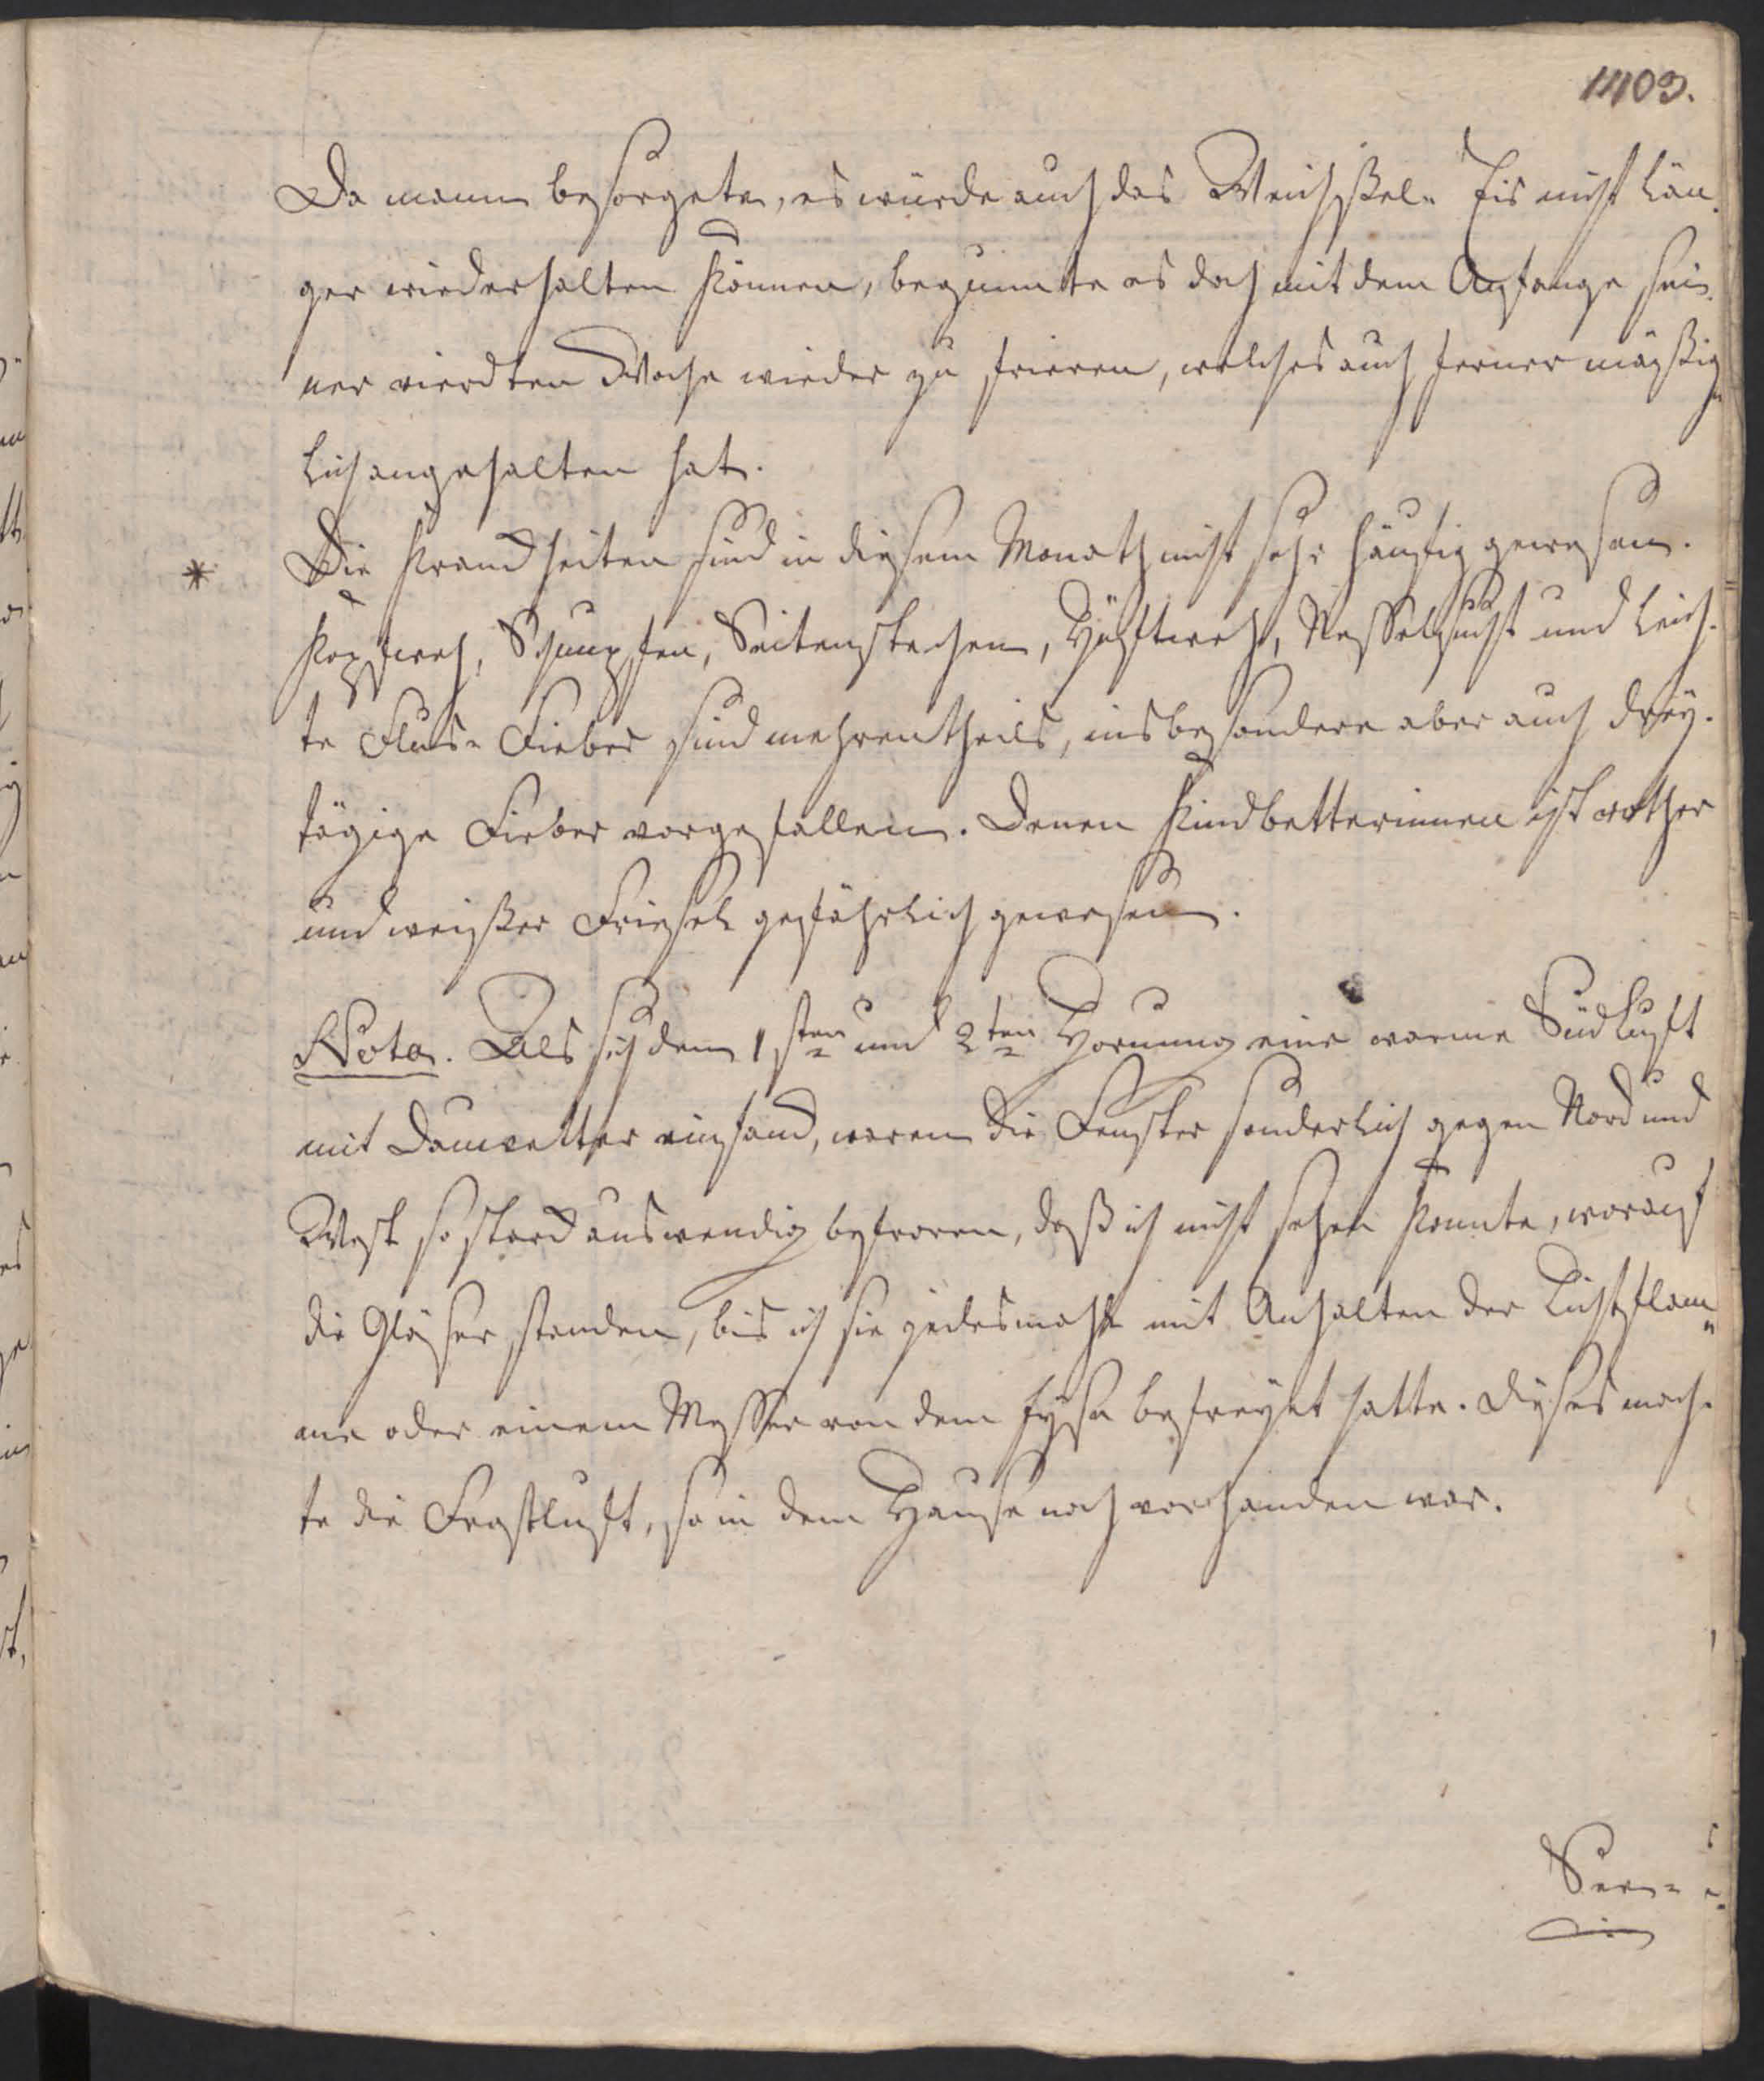 1103.
Da mann besorgete, es würde auch das Weichßel- Eis nicht län-
ger wiederhalten können, begunnte es doch mit dem Anfange sei-
ner vierdten Woche wieder zu frieren, welches auch ferner mäßig-
lich angehalten hat.
* Die Kranckheiten sind in diesem Monath nicht sehr häufig gewesen.
Kopfweh, Schnupfen, Seitenstechen, Hüftweh, Nesselsucht und leich-
te Flus- Fieber sind mehrentheils, insbesondere aber auch drey-
tägige Fieber vorgefallen. Denen Kindbetterinnen ist rother
und weißer Friesel gefährlich gewesen.
Nota. Als sich den 1sten und 2ten Hornung eine warme Südluft
mit Dauwetter einfand, waren die Fenster sonderlich gegen Nord und
West so starck auswendig befroren, daß ich nicht sehen konnte, worauf
die Gläser standen, bis ich sie jedesmahl mit Anhalten der Lichtflam-
me oder einem Messer von dem Eyse befreyet hatte. Dieses mach-
te die Frostluft, so in dem Hause noch vorhanden war.